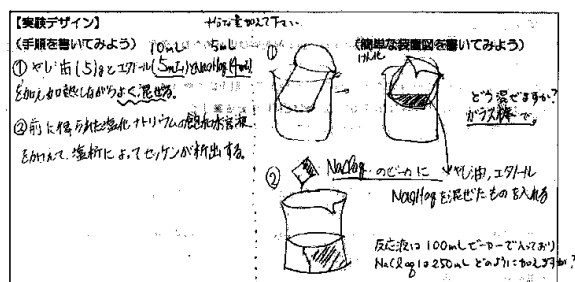 【実験デザイン】
十分な量加えて下さい。
(手順を書いてみよう)
10mL 5mL
① やし油(5)gとエタノール(5mL)とNaOHaq(4mL)
を加え加熱しながらよく混ぜる。
②前に得られた塩化ナトリウムの飽和水溶液
をかけて、塩析によってセッケンが析出する。
(簡単な装置図を書いてみよう)
①
けん化
どう混ぜますか?
ガラス棒で。
②
NaClaq. のビーカーに
やし油,エタノール
NaOHaqを混ぜたものを入れる
反応液は100mLビーカーで入っており
NaClaqは250mL どのように加えますか?